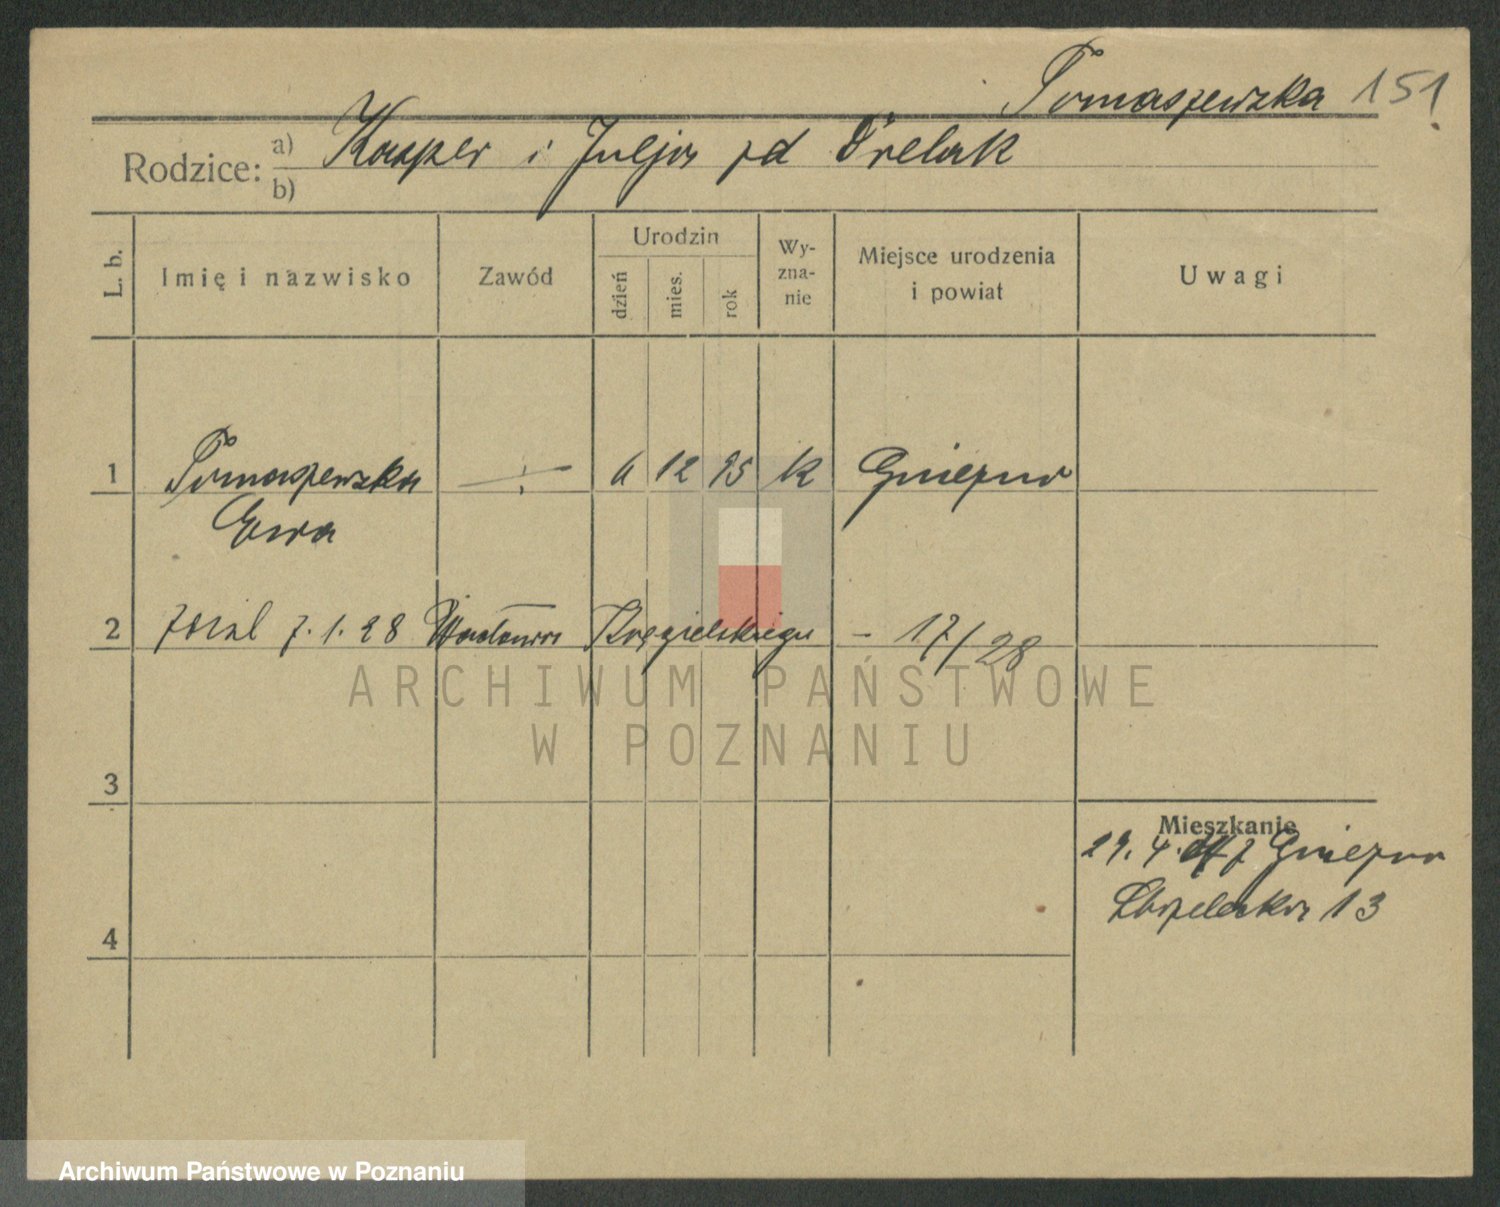 Tomaszewska 151
Rodzice: a) Kasper i Julja zd Drelak
b)
L. b. Imię i nazwisko Zawód Urodzin dzień mies. rok Wy-zna-nie Miejsce urodzenia i powiat Uwagi
1 Tomaszewska 6 12 25 k Gniezno
Ewa
2 7.1.28 Wacława Kręgielskiego - 17/28
ARCHIWUM PAŃSTWOWE
W POZNANIU
3
Mieszkanie
29.4. Gniezno
13
4
Archiwum Państwowe w Poznaniu